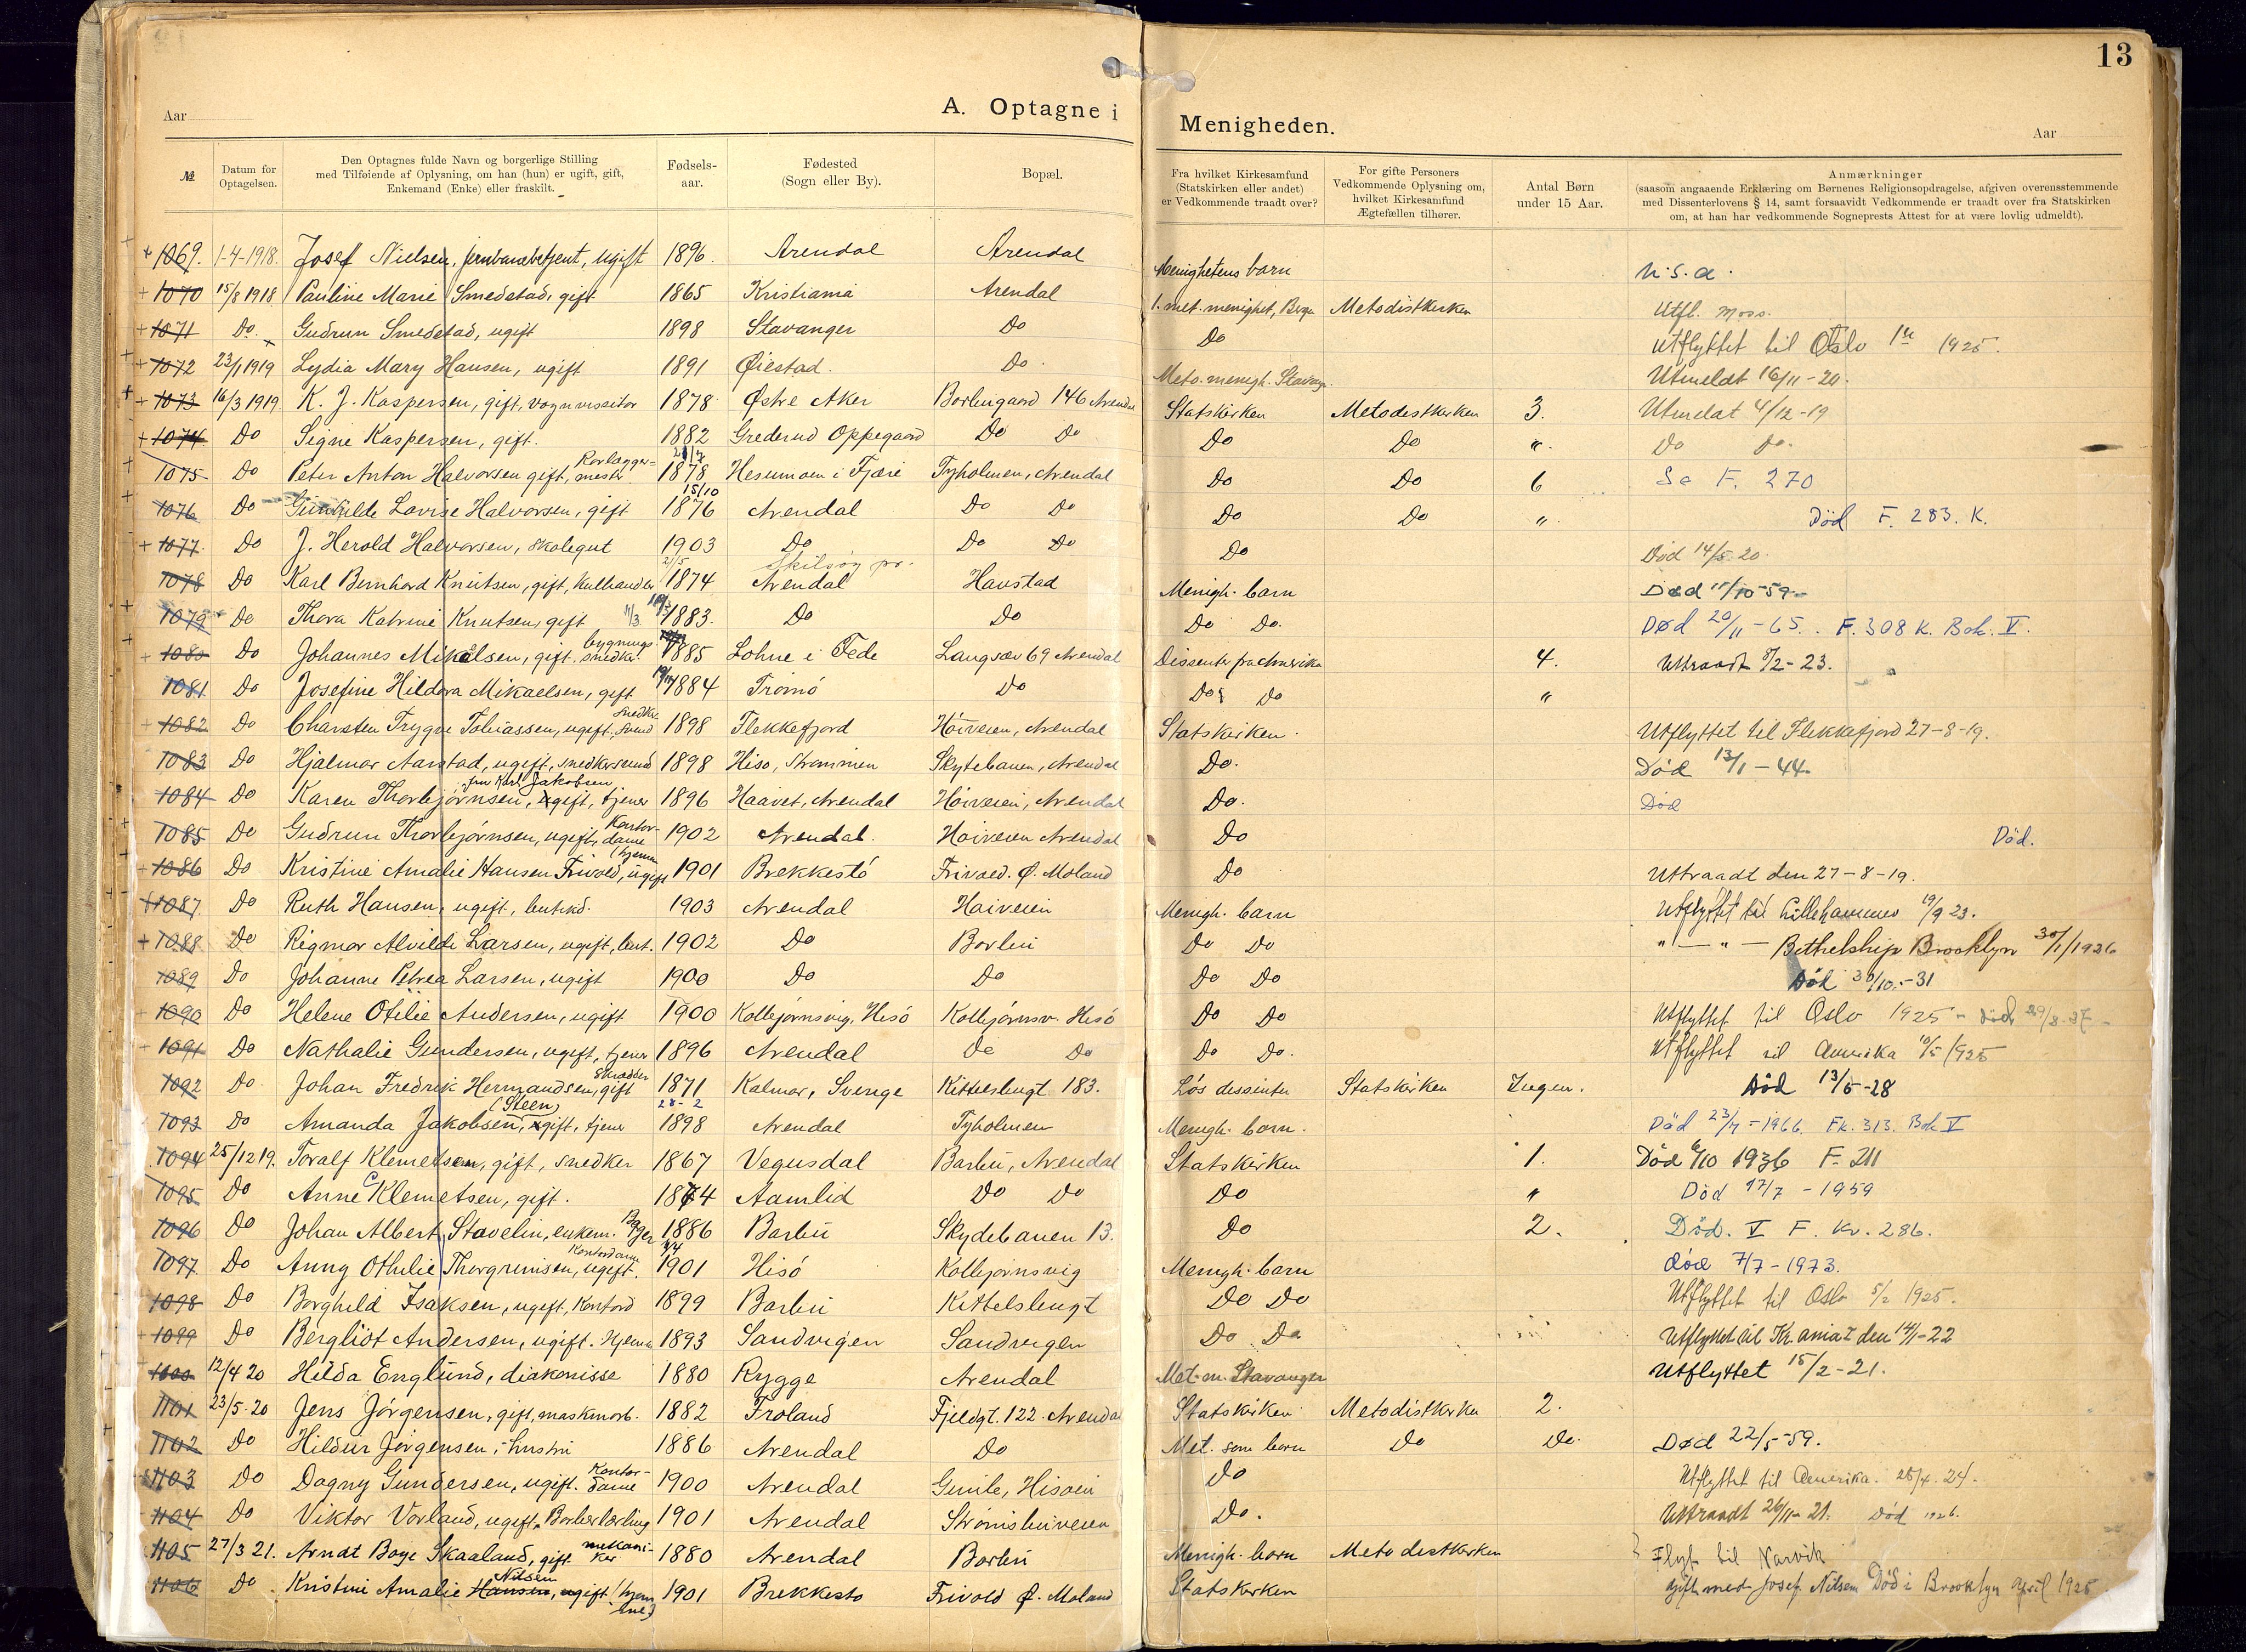 13
Aar A. Optagne i Menigheden. Aar
№ | Datum for Optagelsen. | Den Optagnes fulde Navn og borgerlige Stilling med Tilføiende af Oplysning, om han (hun) er ugift, gift, Enkemand (Enke) eller fraskilt. | Fødsels-aar. | Fødested (Sogn eller By). | Bopæl. | Fra hvilket Kirkesamfund (Statskirken eller andet) er Vedkommende traadt over? | For gifte Personers Vedkommende Oplysning om, hvilket Kirkesamfund Ægtefællen tilhører. | Antal Børn under 15 Aar. | Anmærkninger (saasom angaaende Erklæring om Børnenes Religionsopdragelse, afgiven overensstemmende med Dissenterlovens § 14, samt forsaavidt Vedkommende er traadt over fra Statskirken om, at han har vedkommende Sogneprests Attest for at være lovlig udmeldt).
1069. 1-4-1918. Josef Nielsen, jernbanebetjent, ugift 1896. Arendal Arendal Menighetens barn U.S.A.
1070 15/8 1918 Pauline Marie Smedstad, gift 1865 Kristiania Arendal 1. met. menighet, Bergen Metodistkirken Utfl. Moss.
1071 Do. Gudrun Smedstad, ugift 1898 Stavanger Do Do Utflyttet til Oslo 1925.
1072 23/1 1919 Lydia Mary Hansen, ugift 1891 Øiestad. Do. Meto. menigh. Stavang. Utmeldt 16/11-20.
1073 16/3 1919. K. J. Kaspersen, gift, vognvisitør 1878 Østre Aker Barbugaard 146 Arendal Statskirken Metodistkirken 3. Utmeldt 4/12-19
1074 Do Signe Kaspersen, gift. 1882 Grederud Oppegaard Do Do Do Do ". Do Do.
1075 Do Peter Anton Halvorsen gift, Rørlæggermester 1878 Hesumoen i Fjære Tyholmen, Arendal Do Do 6 Se F. 270
1076 Do Gunhilde Lovise Halvorsen, gift 15/10 1876 Arendal Do Do Do Do ". Död F. 283. K.
1077 Do J. Herold Halvorsen, skolegut 1903 Do Do Do Do Död 14/5 20.
1078 Do Karl Bernhard Knutsen, gift, kulhandler 21/5 1874 Arendal Havstad Menigh. barn Død 11/10-59
1079 Do Thora Katrine Knutsen, gift 11/3 1883. Do Do Do Do. Død 20/11-65. F. 308 K. Bok. V.
1080 Do Johannes Mikalsen, gift, bygningssnedker 1885 Lohne i Fede Langsæv 69 Arendal Dissenter fra Amerika 4. Uttraadt 8/2-23.
1081 Do Josefine Hildora Mikaelsen, gift 1884 Tromö Do Do Do "
1082 Do Charsten Trygve Tobiassen, ugift, snedkersvend 1898 Flekkefjord Höiveien, Arendal Statskirken. Utflyttet til Flekkefjord 27-8-19.
1083 Do Hjalmar Aarstad, ugift, snedkersvend 1898 Hisø, Strømmen Skytebanen, Arendal Do. Död 13/1-44.
1084 Do Karen Thorbjørnsen, fru Karl Jakobsen gift, tjener 1896 Haavet, Arendal Höiveien, Arendal Do. Död
1085 Do Gudrun Thorbjørnsen, ugift, Kontordame 1902 Arendal. Høiveien Arendal Do Död.
1086 Do Kristine Amalie Hansen Frivold, ugift (hjemme 1901 Brekkestö Frivold. Ø. Moland Do Uttraadt den 27-8-19.
1087 Do Ruth Hansen, ugift, butikd. 1903 Arendal Høiveien Menigh. barn Utflyttet til Lillehammer 19/9 23.
1088 Do Rigmor Alvilde Larsen, ugift, but. 1902 Do Barbu Do Do " — " — Bethelship Brooklyn 30/1/1926
1089 Do Johanne Petrea Larsen, ugift 1900 Do Do Do Do Död 30/10.-31
1090 Do Helene Otilie Andersen, ugift 1900 Kolbjørnsvig, Hisö Kolbjørnsv. Hisö Do Do Utflyttet til Oslo 1925 - död 29/8-37
1091 Do Nathalie Gundersen, ugift, tjener 1896 Arendal Do Do Do Do. Utflyttet til Amerika 10/5 1925
1092 Do Johan Fredrik Hermandsen, gift Skrædder 1871 Kalmar, Sverige Kittelsbugt 183. Løs dissenter Statskirken Ingen. Död 13/5-28
1093 Do Amanda Jakobsen, (Steen) gift, tjener 28-2 1898 Arendal Tyholmen Menigh. barn. Död 23/4-1966. Fk. 313. Bok V
1094 25/12 19. Toralf Klemetsen, gift, snedker 1867 Vegusdal Barbu, Arendal Statskirken 1. Död 6/10 1936 F. 211
1095 Do Anne C Klemetsen, gift. 1874 Aamlid Do Do Do " Död 17/7-1959
1096 Do Johan Albert Stavelin, enkem. Bager 1886 Barbu Skydebanen 13. Do 2. Död. V F. Kv. 286.
1097. Do Anny Othilie Thorgrimsen, ugift. Kontordame 4/4 1901 Hisö Kolbjørnsvig Menigh. barn död 7/7-1973.
1098 Do Borghild Isaksen, ugift, Kontord 1899 Barbu Kittelsbugt Do Do Utflyttet til Oslo 5/2 1925.
1099 Do Bergliot Andersen, ugift. Hjemme 1893 Sandvigen Sandvigen Do Do Utflyttet til Kr.ania I den 14/1-22
1100 12/4 20 Hilda Englund, diakonisse 1880 Rygge Arendal Met. m. Stavanger Utflyttet 15/2-21.
1101 23/5-20 Jens Jörgensen, gift, maskinarb. 1882 Froland Fjeldgt. 122 Arendal Statskirken Metodistkirken 2.
1102 Do Hildur Jörgensen, hustru 1886 Arendal Do Met. som barn Do Do. Død 22/5-59.
1103 Do Dagny Gundersen, ugift. Kontordame 1900 Arendal Gimle, Hisøen Do Utflyttet til Amerika. 25/4. 24.
1104 Do Viktor Vorland, ugift, Barberlærling 1901 Arendal Strømsbuveien Do. Uttraadt 26/11-21. Död 1926.
1105 27/3 21. Arndt Boye Skaaland, gift. mekaniker 1880 Arendal Barbu Menigh. barn Metodistkirken Flyt til Narvik
1106 Do Kristine Amalie Hansen, Nilsen ugift (hjemme) 1901 Brekkestø Frivold Ø. Moland Statskirken Gift med Josef Nilsen Död i Brooklyn April 1925